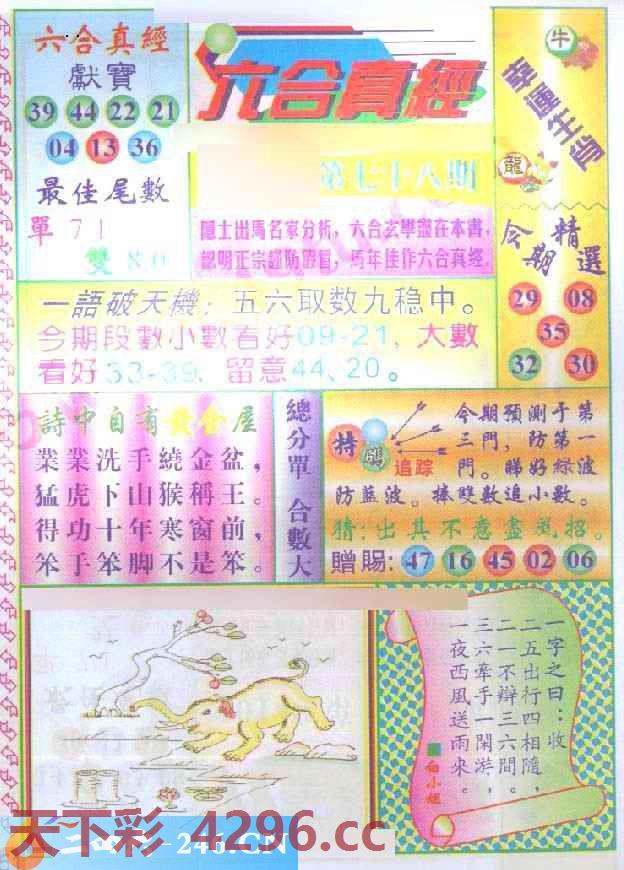 六合真經
獻寶
39 44 22 21
04 13 36
最佳尾數
單 71
雙 80
六合真經
第七十八期
隱士出馬名家分析，六合玄學盡在本書，
認明正宗謹防假冒，馬年佳作六合真經。
牛
幸運生肖
龍
今期精選
29 08
35
32 30
一語破天機：五六取数九稳中。
今期段數小數看好09-21，大數
看好33-39、留意44、20。
詩中自有黃金屋
業業洗手繞金盆，
猛虎下山猴稱王。
得功十年寒窗前，
笨手笨脚不是笨。
總分單 合數大
特
追踪
今期預測于第
三門，防第一
門。睇好綠波
防藍波。捧雙數追小數。
猜：出其不意盡氣招。
贈賜：47 16 45 02 06
一字之曰：收
二五出行四相隨，
二一不辦三六間。
三六牽手一閑游，
一夜西風送雨來。
白小姐
天下彩 4296.cc
246.CN